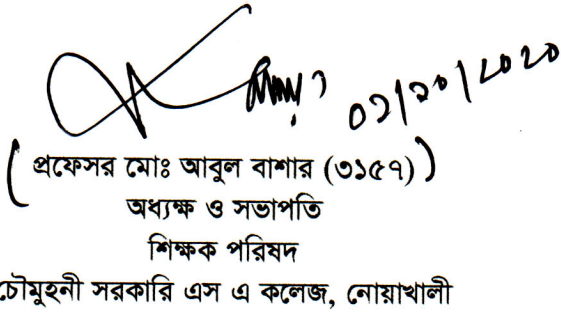 ০১/১০/২০২০
(প্রফেসর মোঃ আবুল বাশার (৩১৫৭))
অধ্যক্ষ ও সভাপতি
শিক্ষক পরিষদ
চৌমুহনী সরকারি এস এ কলেজ, নোয়াখালী